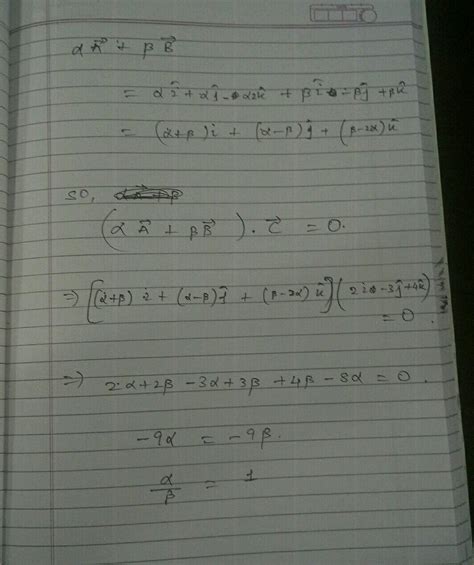 α A⃗ + β B⃗
= α î + α ĵ - α2k̂ + β î - β ĵ + β k̂
= (α+β) i + (α-β) ĵ + (β-2α) k̂
so,
(α A⃗ + β B⃗) . C⃗ = 0.
⇒ [(α+β) i + (α-β) ĵ + (β-2α) k̂] (2i - 3ĵ + 4k̂)
= 0.
⇒) 2α + 2β - 3α + 3β + 4β - 8α = 0.
-9α = -9β.
α/β = 1